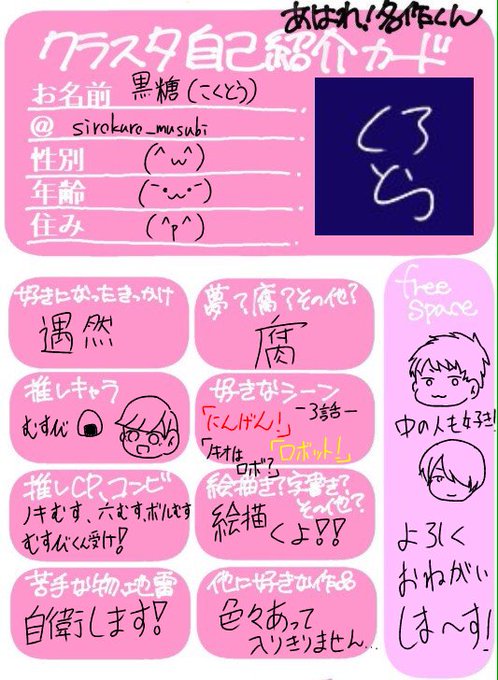 あはれ!名作くん
クラスタ自己紹介カード
お名前 黒糖(こくとう)
@ sirokuro_musubi
性別 (^ω^)
年齢 (˘ω˘)
住み (^p^)
くろ
とう
好きになったきっかけ
遇然
夢?腐?その他?
腐
推しキャラ
むすび
好きなシーン
-3話-
「にんげん!」
「ノキオは
ロボ?」
「ロボット!」
推しCP、コンビ
ノキむす、六むす、ボルむす
むすびくん受け!
絵描き?字書き?
その他?
絵描
くよ!!
苦手な物、地雷
自衛します!
他に好きな作品
色々あって
入りきりません...
free
space
中の人も好き!
よろしく
おねがい
しま〜す!